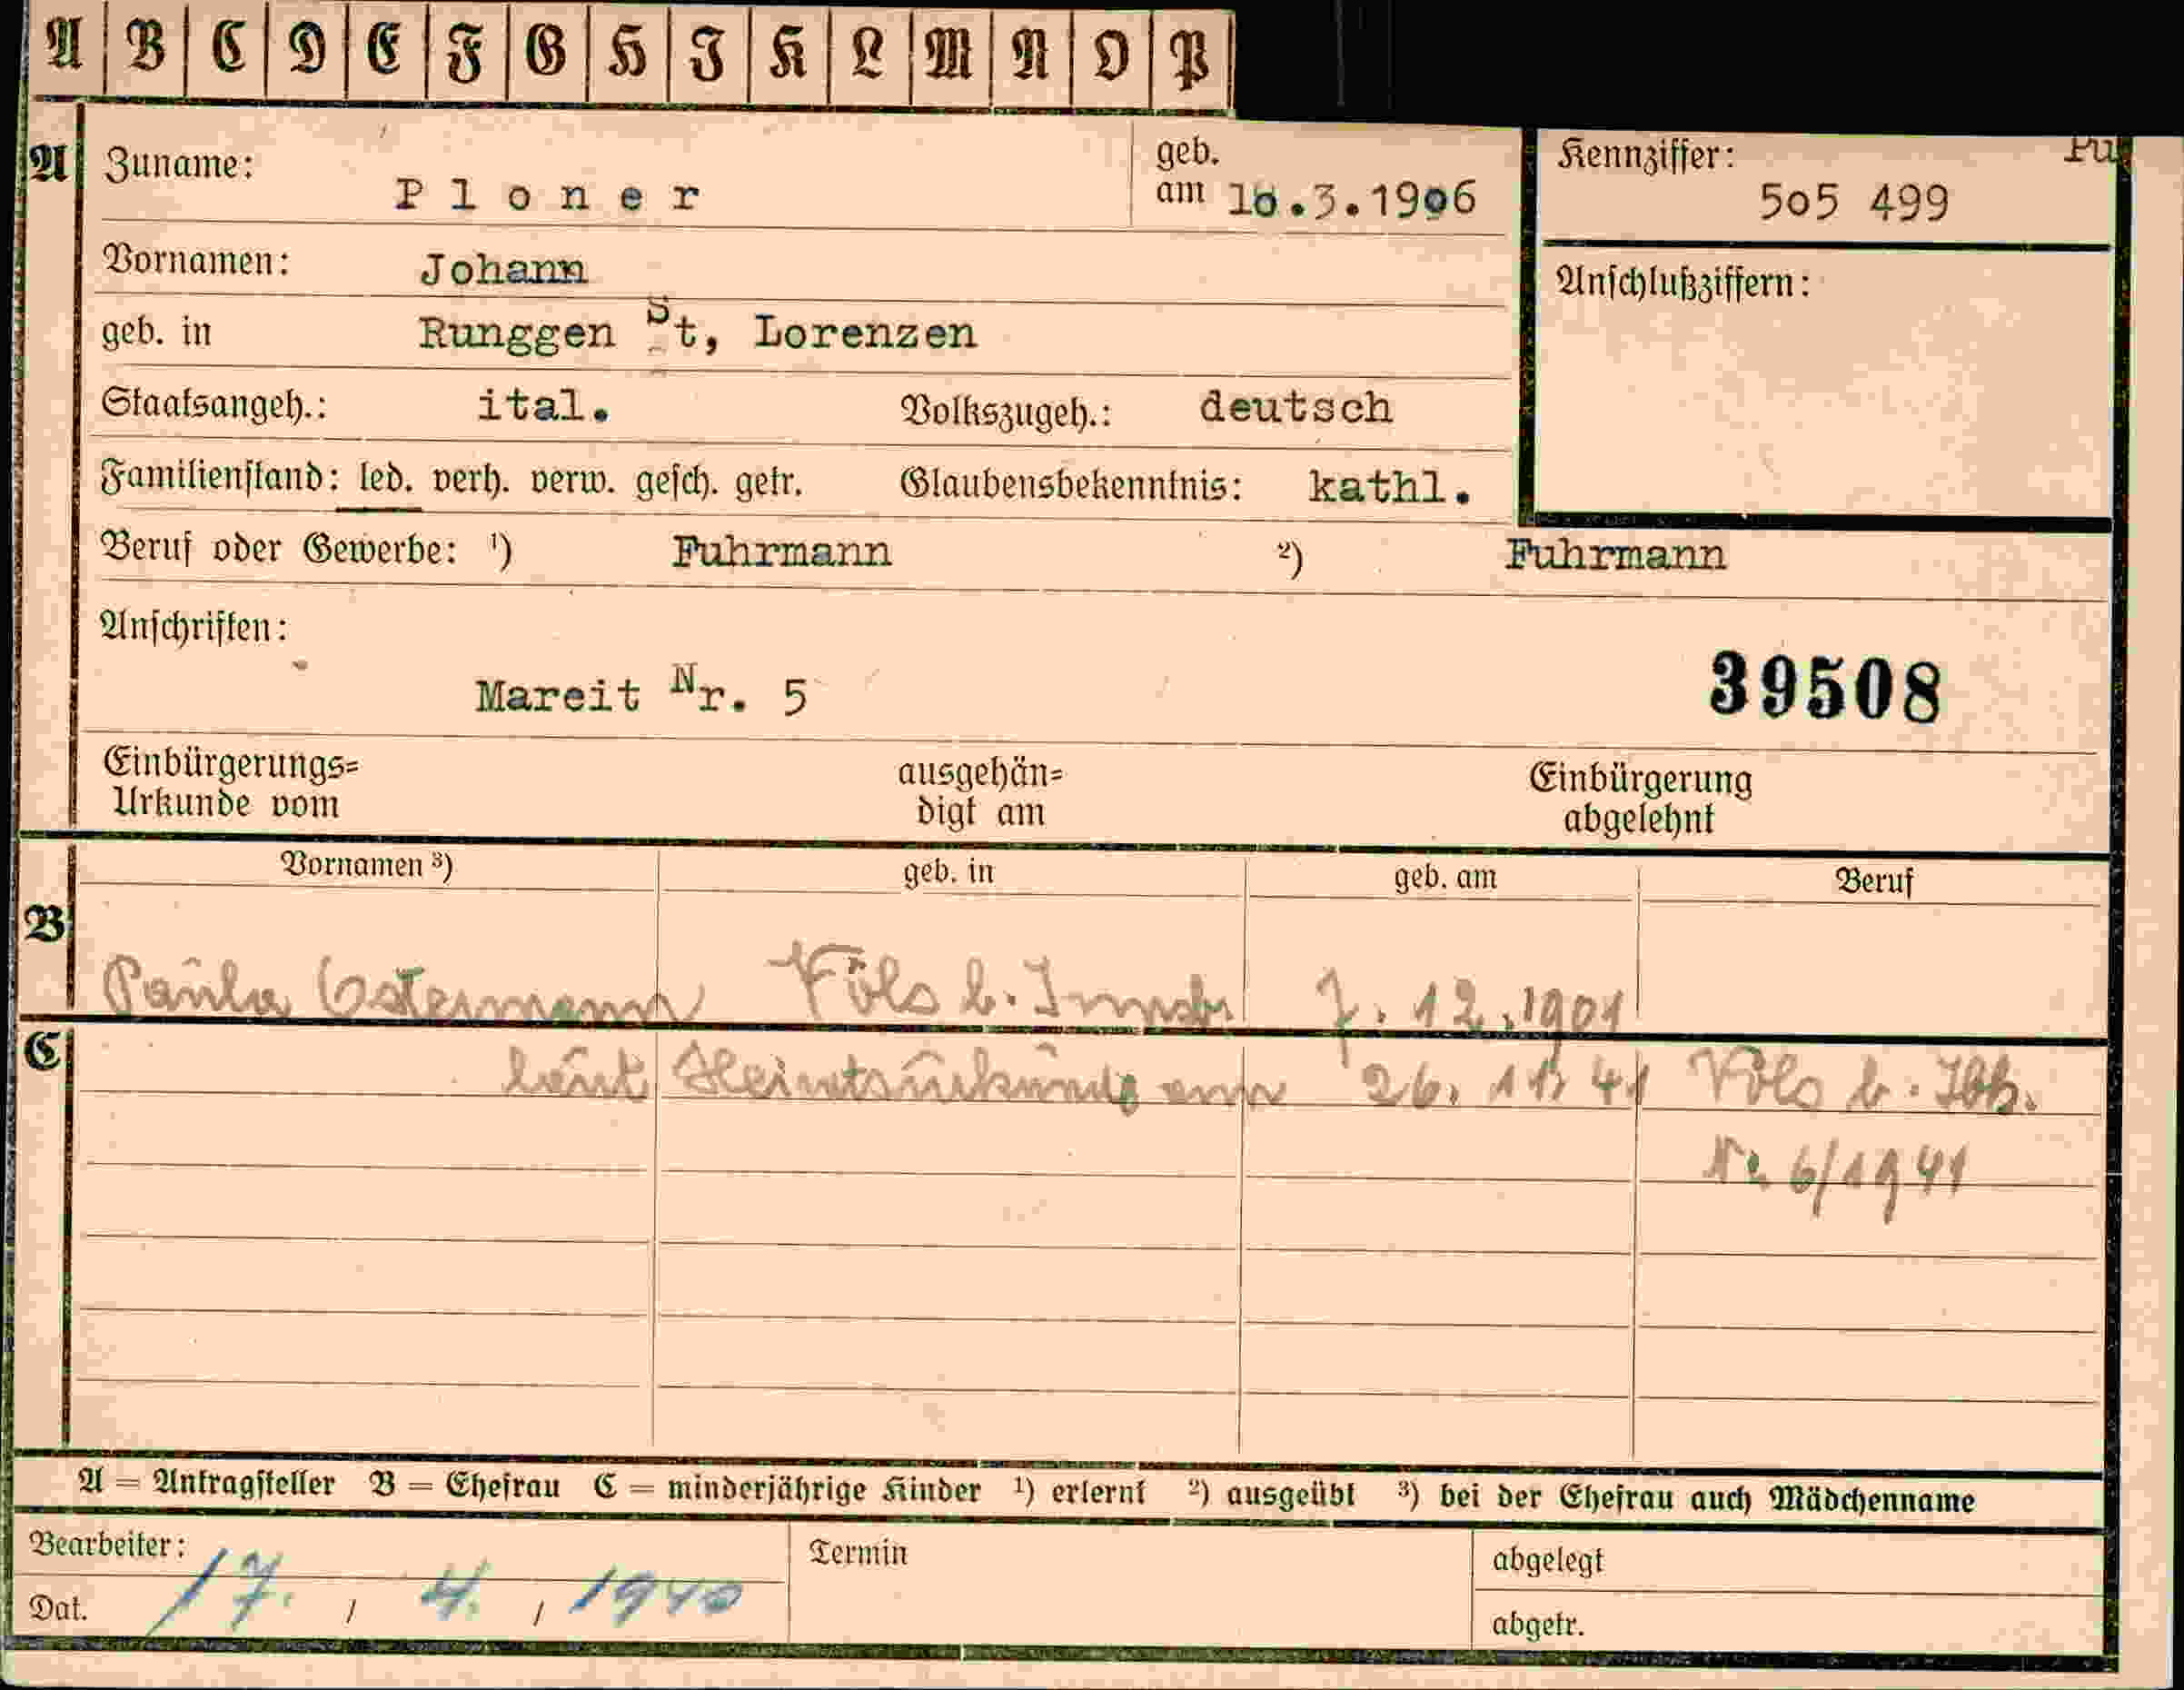 A B C D E F G H I K L M N O P
A Zuname: Ploner geb. am 10.3.1906 Kennziffer: 505 499 Pu
Vornamen: Johann Anschlußziffern:
geb. in Runggen St, Lorenzen
Staatsangeh.: ital. Volkszugeh.: deutsch
Familienstand: led. verh. verw. gesch. getr. Glaubensbekenntnis: kathl.
Beruf oder Gewerbe: ¹) Fuhrmann ²) Fuhrmann
Anschriften:
Mareit Nr. 5 39508
Einbürgerungs= ausgehän= Einbürgerung
Urkunde vom digt am abgelehnt
Vornamen ³) geb. in geb. am Beruf
B Paula Ostermann Völs b. Innsbr 7. 12.1901
C laut Heiratsurkunde am 26. 11 41 Völs b. Ibk.
Nr. 6/1941
A = Antragsteller B = Ehefrau C = minderjährige Kinder ¹) erlernt ²) ausgeübt ³) bei der Ehefrau auch Mädchenname
Bearbeiter: Termin abgelegt
Dat. 17. / 4. / 1940 abgetr.